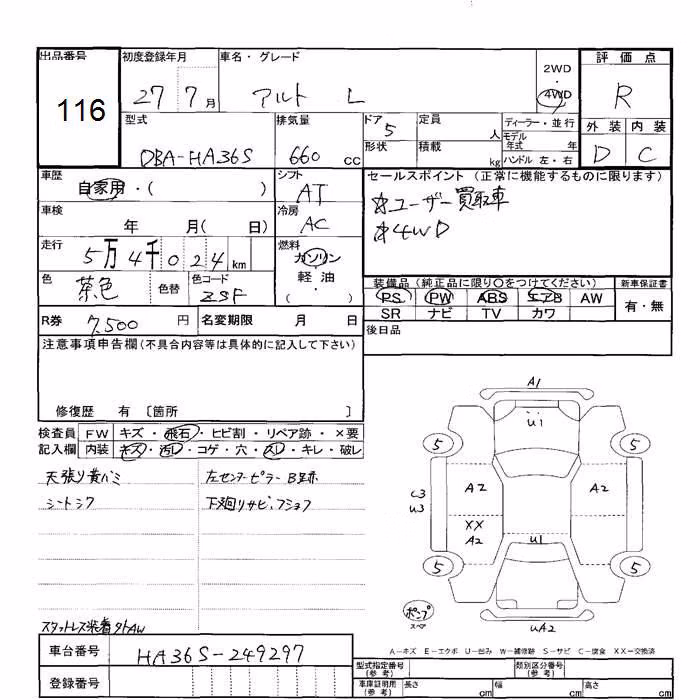 出品番号
116
初度登録年月
27 7月
車名・グレード
アルト L
2WD
4WD
評価点
R
外装 内装
D C
型式
DBA-HA36S
排気量
660 cc
ドア 5
形状
定員 人
積載 kg
ディーラー・並行
モデル年式 年
ハンドル 左・右
車歴
自家用・( )
シフト
AT
セールスポイント (正常に機能するものに限ります)
*ユーザー買取車
*4WD
車検
年 月( 日)
冷房
AC
走行
5万4千024km
燃料
ガソリン
軽油
( ・ )
色
茶色
色替
色コード
ZSF
装備品(純正品に限り○をつけてください)
PS PW ABS エアB AW
SR ナビ TV カワ
新車保証書
有・無
R券 7,500 円
名変期限 月 日
後日品
注意事項申告欄(不具合内容等は具体的に記入して下さい)
修復歴 有 〔箇所 〕
検査員 FW キズ・飛石・ヒビ割・リペア跡・×要
記入欄 内装 キズ・汚レ・コゲ・穴・スレ・キレ・破レ
天張り黄バミ
シートシワ
左センターピラーB歪
下廻りサビ、フショク
スタットレス装着 タトAW
車台番号 HA36S-249297
登録番号
A1
U1
5 5
C3
W3
A2 A2
XX
A2
U1
5 5
ポンプ
スペア
UA2
A-キズ E-エクボ U-凹み W-補修跡 S-サビ C-腐食 XX-交換済
型式指定番号
(参考)
類別区分番号
(参考)
車庫証明用
(参考)
長さ cm 幅 cm 高さ cm